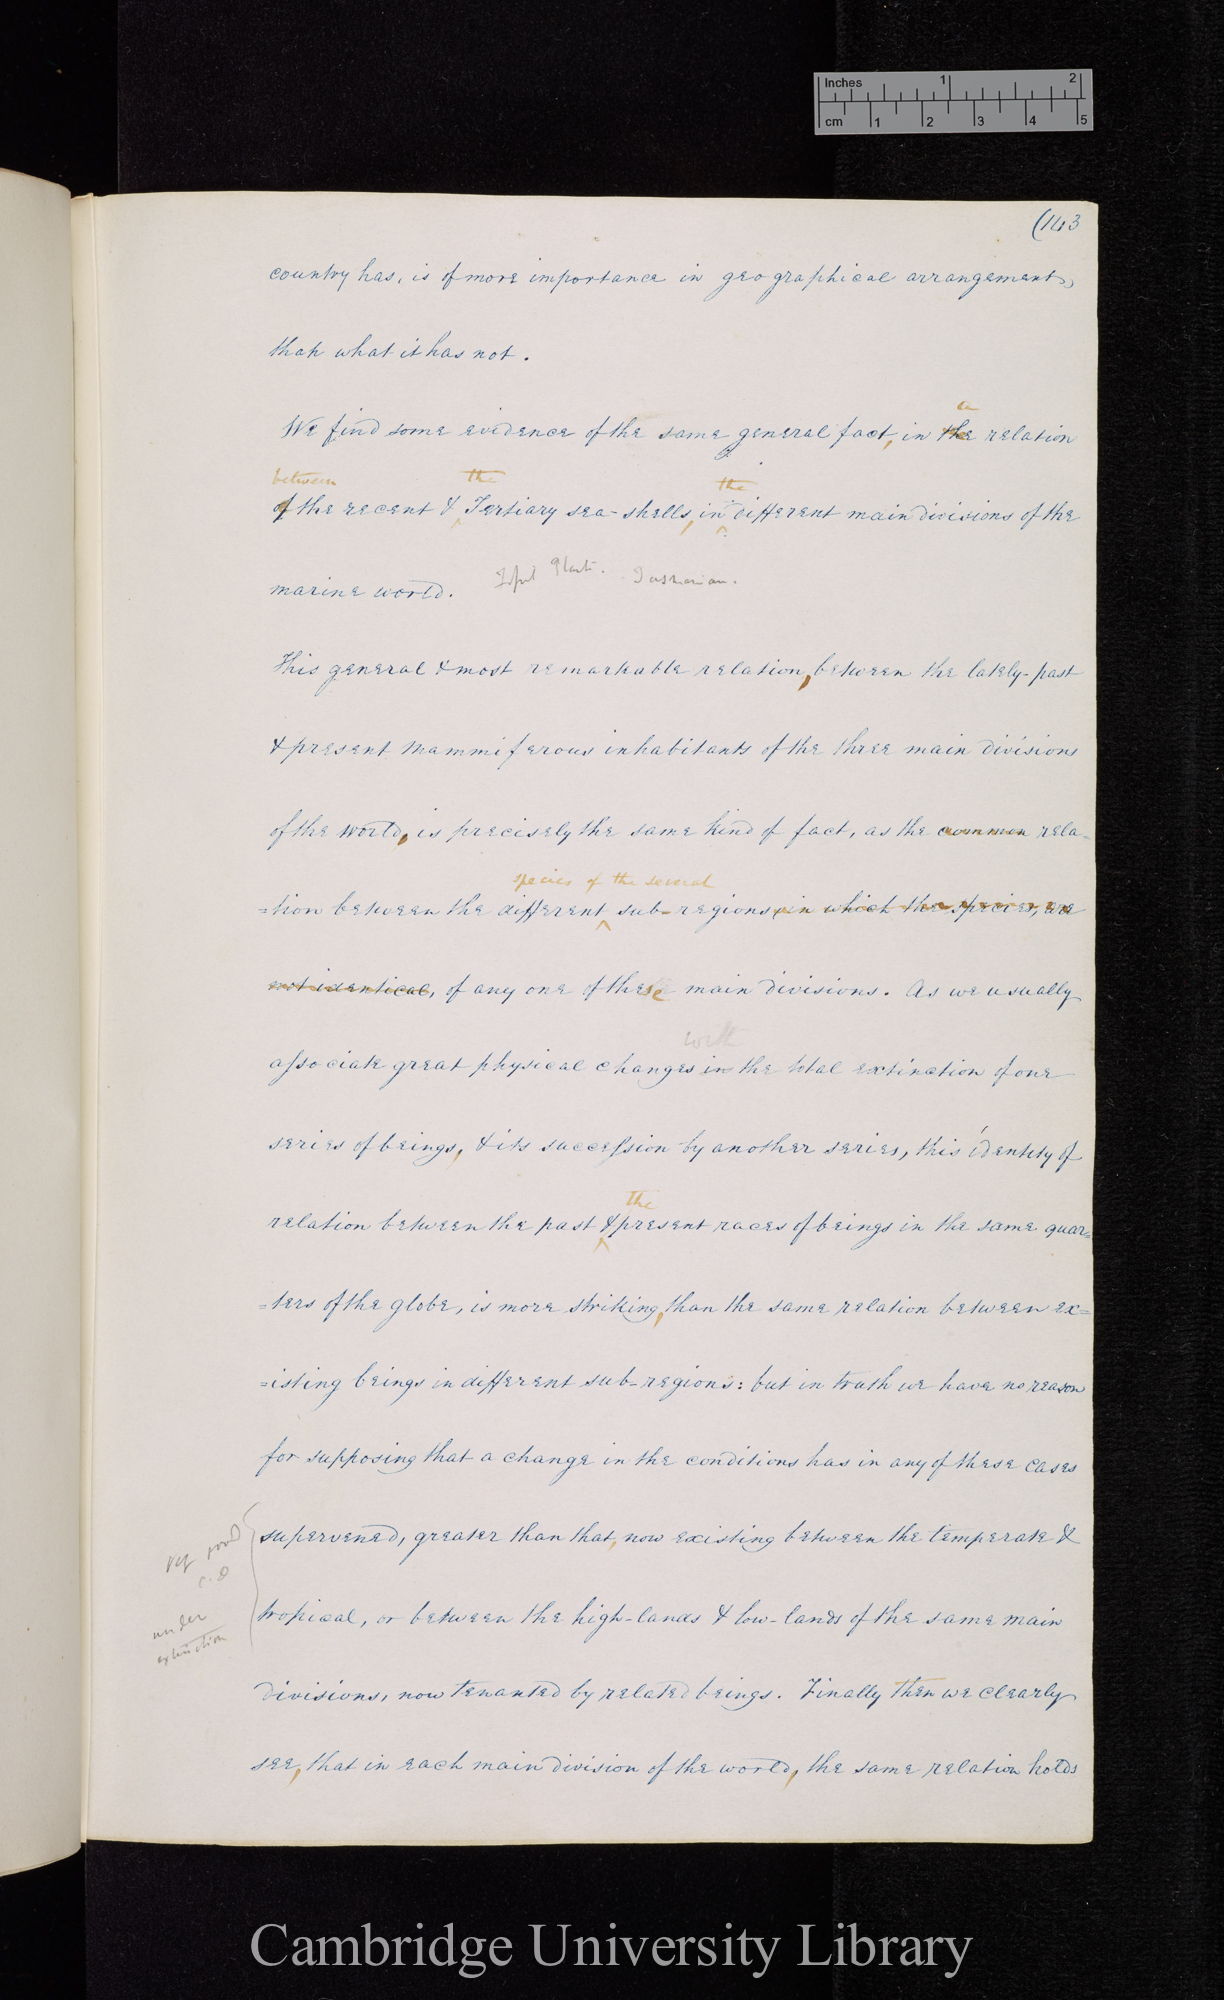 Inches 1 2
cm 1 2 3 4 5
(143
country has, is of more importance in geographical arrangement,
than what it has not.
a
We find some evidence of the same general fact, in the relation
between the the
of the recent & Tertiary sea-shells, in different main divisions of the
marine world.
This general & most remarkable relation, between the lately-past
& present mammiferous inhabitants of the three main divisions
of the world, is precisely the same kind of fact, as the common rela-
species of the several
=tion between the different sub-regions, in which the species, are
not identical, of any one of these main divisions. As we usually
with
associate great physical changes in the total extinction of one
series of beings, & its succession by another series, this identity of
the
relation between the past & present races of beings in the same quar=
=ters of the globe, is more striking, than the same relation between ex=
=isting beings in different sub-regions: but in truth we have no reason
for supposing that a change in the conditions has in any of these cases
supervened, greater than that, now existing between the temperate &
very good
C.D
tropical, or between the high-lands & low-lands of the same main
under
extinction
divisions, now tenanted by related beings. Finally then we clearly
see, that in each main division of the world, the same relation holds
Cambridge University Library